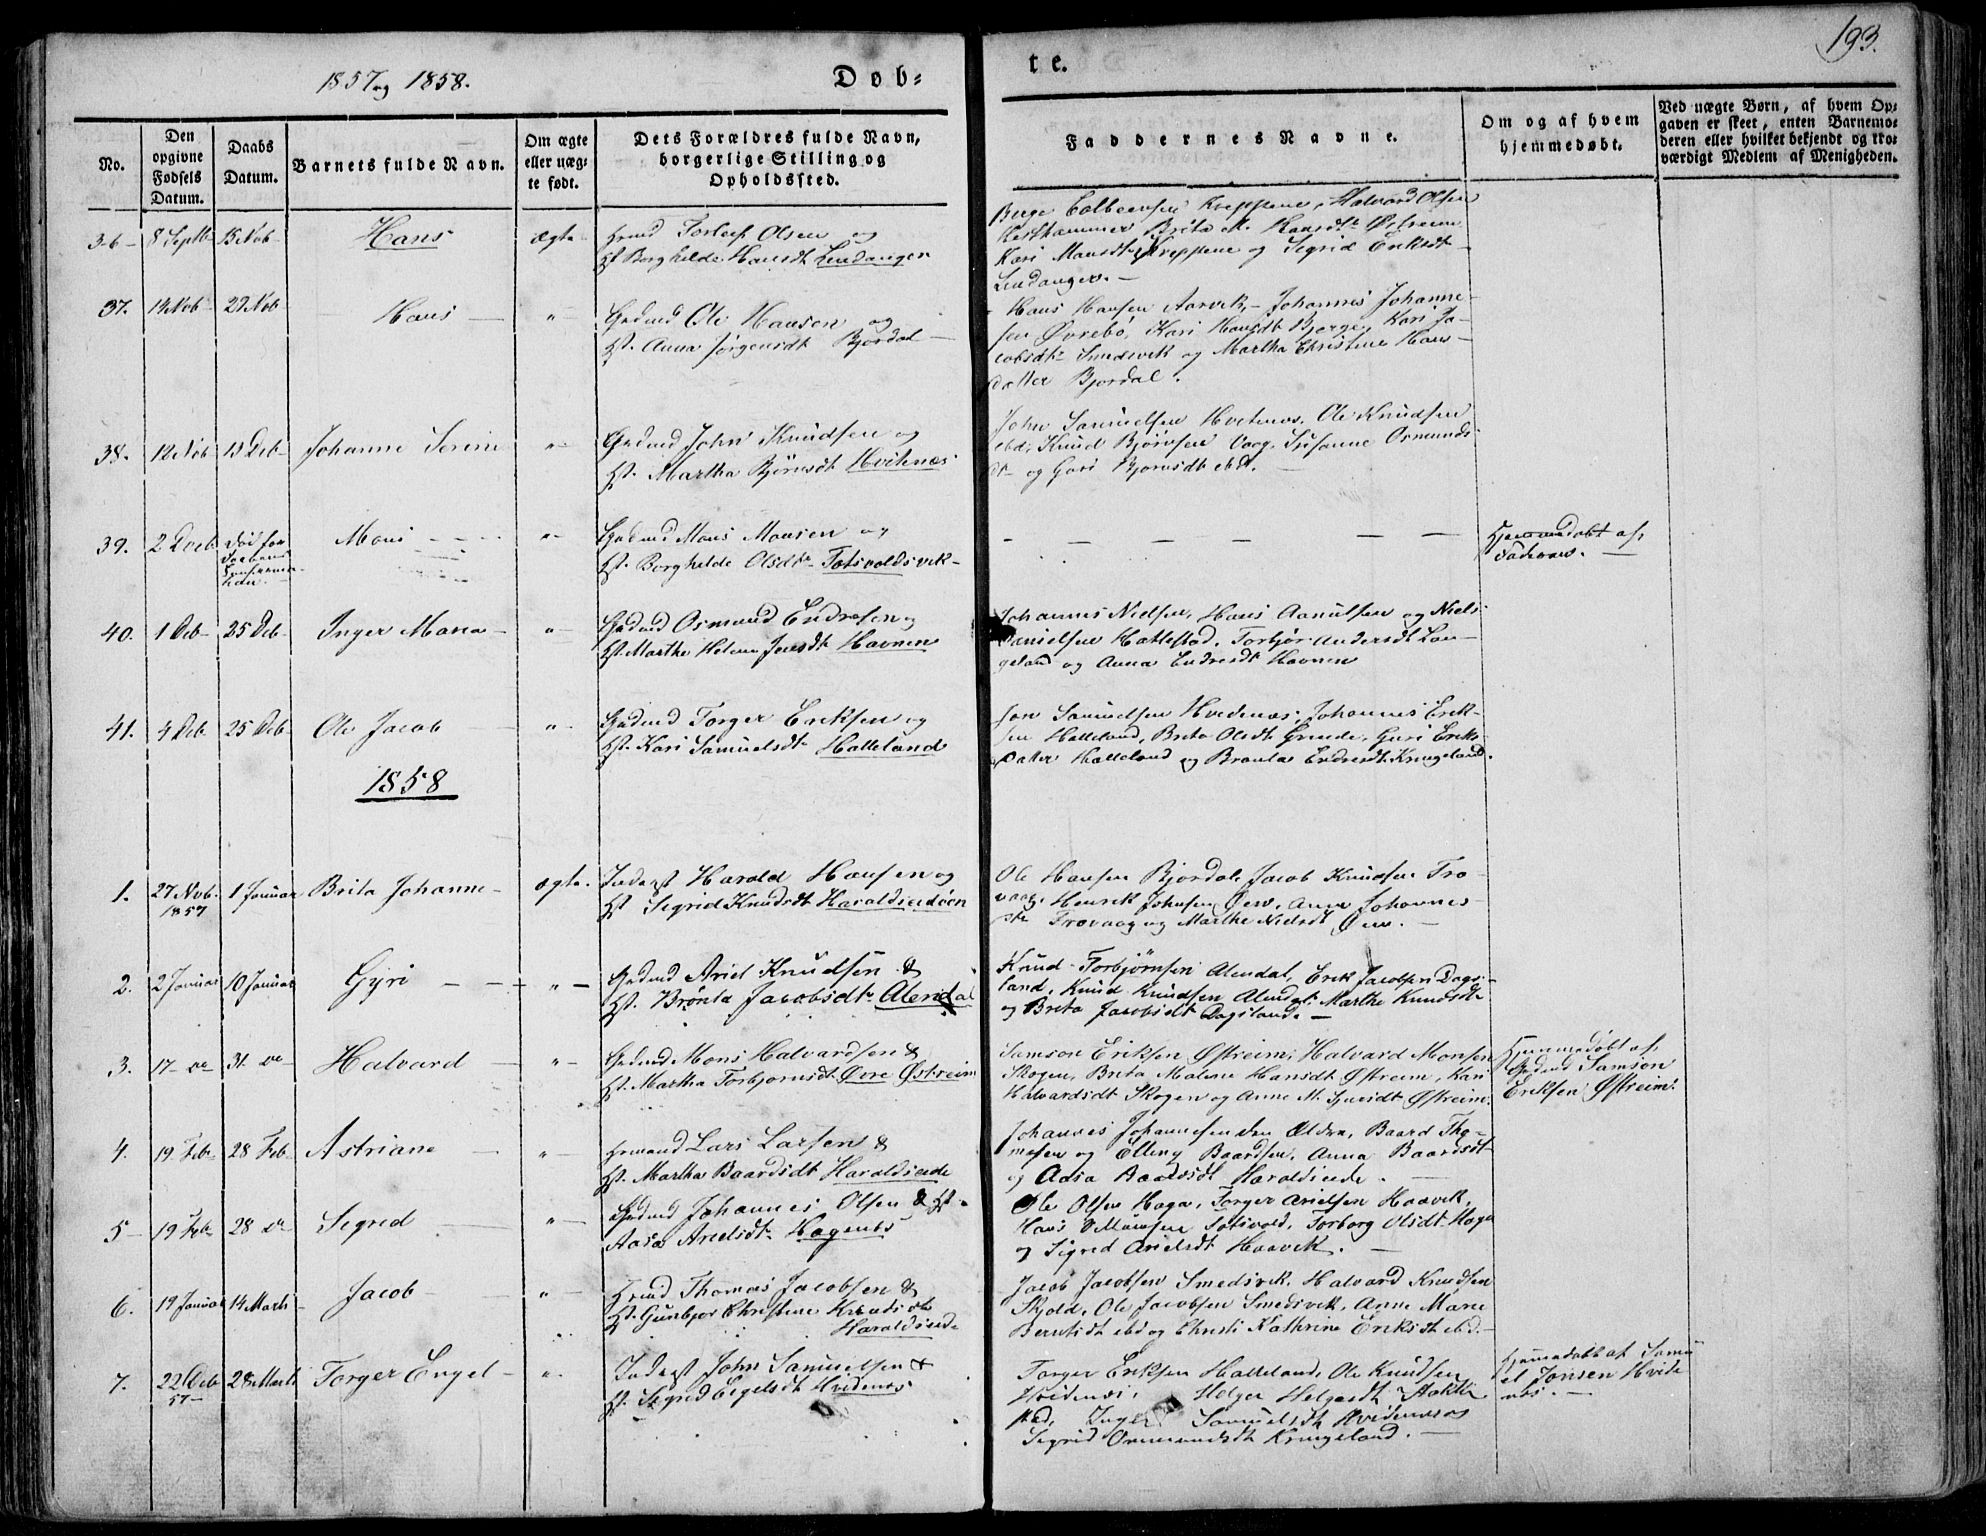 1857 og 1858.
Døb-
te.
193.
No.
Den opgivne Fødsels Datum.
Daabs Datum.
Barnets fulde Navn.
Om ægte eller uægte født.
Dets Forældres fulde Navn, borgerlige Stilling og Opholdssted.
Faddernes Navne.
Om og af hvem hjemmedøbt.
Ved uægte Børn, af hvem Opgaven er skeet, enten Barnemoderen eller hvilket bekjendt og troværdigt Medlem af Menigheden.
36 8 Septb 15 Nob Hans ægte
Torleif Olsen og
Borghilde Hansdt Lindanger
Halvard Olsen
Brita M. Hansdt Østreim
Kari Monsdt Kreppene og Sigrid Eriksdt
Lindanger.
37. 14 Nob 29 Nob Hans "
Grdmd Ole Hansen og
Hst. Anna Jørgensdt Bjordal
Hans Hansen Aarvik, Johannes Johanne-
sen Øvrebø, Kari Hansdt Bjerge, Kari Ja-
cobsdt Smedsvik og Martha Christine Hans-
datter Bjordal.
38. 12 Nob 13 Deb Johanne Serine "
Grdmd John Knudsen og
Hst. Martha Bjørnsdt Hvitenæs
John Samuelsen Hvitenæs, Ole Knudsen
ebd, Knud Bjørnsen Vaag, Susanne Osmunds-
dt og Guri Bjørnsdt ebd.
39. 2 Deb Død før Daabens
Mons "
Grdmd Mons Monsen og
Hst. Borghilde Olsdt Totsvoldsvik
Hjemmedøbt af
Faderen.
40. 1 Deb 25 Deb Inger Maria "
Grdmd Osmund Endresen og
Hst. Marthe Helene Jensdt Havnen
Johannes Nielsen, Hans Aanulsen og Niels
Danielsen Hattestad, Torbjør Andersdt Lan-
geland og Anna Endresdt Havnen
41. 4 Deb 25 Deb Ole Jacob "
Grdmd Torger Eriksen og
Hst. Kari Samuelsdt Halleland
Jon Samuelsen Hvidenæs, Johannes Erik-
sen Halleland, Brita Olsdt Grinde, Guri Eriks-
datter Halleland og Brønla Endresdt Kringeland.
1858
1. 27 Nob. 1857 1 Januar Brita Johanne ægte
Inderst Harald Hansen og
Hst Sigrid Knudsdt Haraldseidøen
Ole Hansen Bjordal, Jacob Knudsen Tro-
vaag, Henrik Johnsen Øen, Anna Johannes-
dt Trovaag og Marthe Nielsdt Øen.
2. 2 Januar 10 Januar Gyri "
Grdmd Ariel Knudsen &
Hst. Brønla Jacobsdt Alendal
Knud Torbjørnsen Alendal, Erik Jacobsen Dags-
land, Knud Knudsen Alendal, Marthe Knudsdt
og Brita Jacobsdt Dagsland.
3. 17 do 31 do Halvard "
Grdmd Mons Halvardsen &
Hst. Martha Torbjørnsdt Øvre Østreim
Samson Eriksen Østreim, Halvard Monsen
Skogen, Brita Malene Hansdt Østreim, Kari
Halvardsdt Skogen og Anne M. Østreim.
Hjemmedøbt af
Grdmd Samson
Eriksen Østreim.
4. 19 Feb 28 Feb Astriane "
Lars Larsen &
Hst. Martha Baardsdt Haraldseide
Johannes Johannesen den Ældre, Baard Tho-
masen og Elling Baardsen, Anna Baardsdt
og Aasa Baardsdt Haraldseide.
5 19 Feb 28 do Sigrid "
Grdmd Johannes Olsen & Hst.
Aasa Arielsdt Hagenes
Ole Olsen Haga, Torger Arielsen Haavik,
Hans Monsen Totsvold, Torborg Olsdt Haga
og Sigrid Arielsdt Haavik.
6. 19 Januar 14 Marts Jacob "
Thomas Jacobsen &
Hst. Gunbjør Christine Knudsdt
Haraldseide
Jacob Jacobsen Smedsvik, Halvard Knudsen
Skjold, Ole Jacobsen Smedsvik, Anne Marie
Berntsdt ebd og Christi Kathrine Eriksdt ebd.
7. 22 Deb 57 28 Marts Torger Engel "
Inderst John Samuelsen &
Hst. Sigrid Engelsdt Hvidenæs
Torger Eriksen Halleland, Ole Knudsen
Hvidenæs, Helger Helgesdt
Inger Samuelsdt Hvidenæs og
Sigrid Ommundsdt Kringeland.
Hjemmedøbt af Samu-
el Jonsen Hvide
næs.